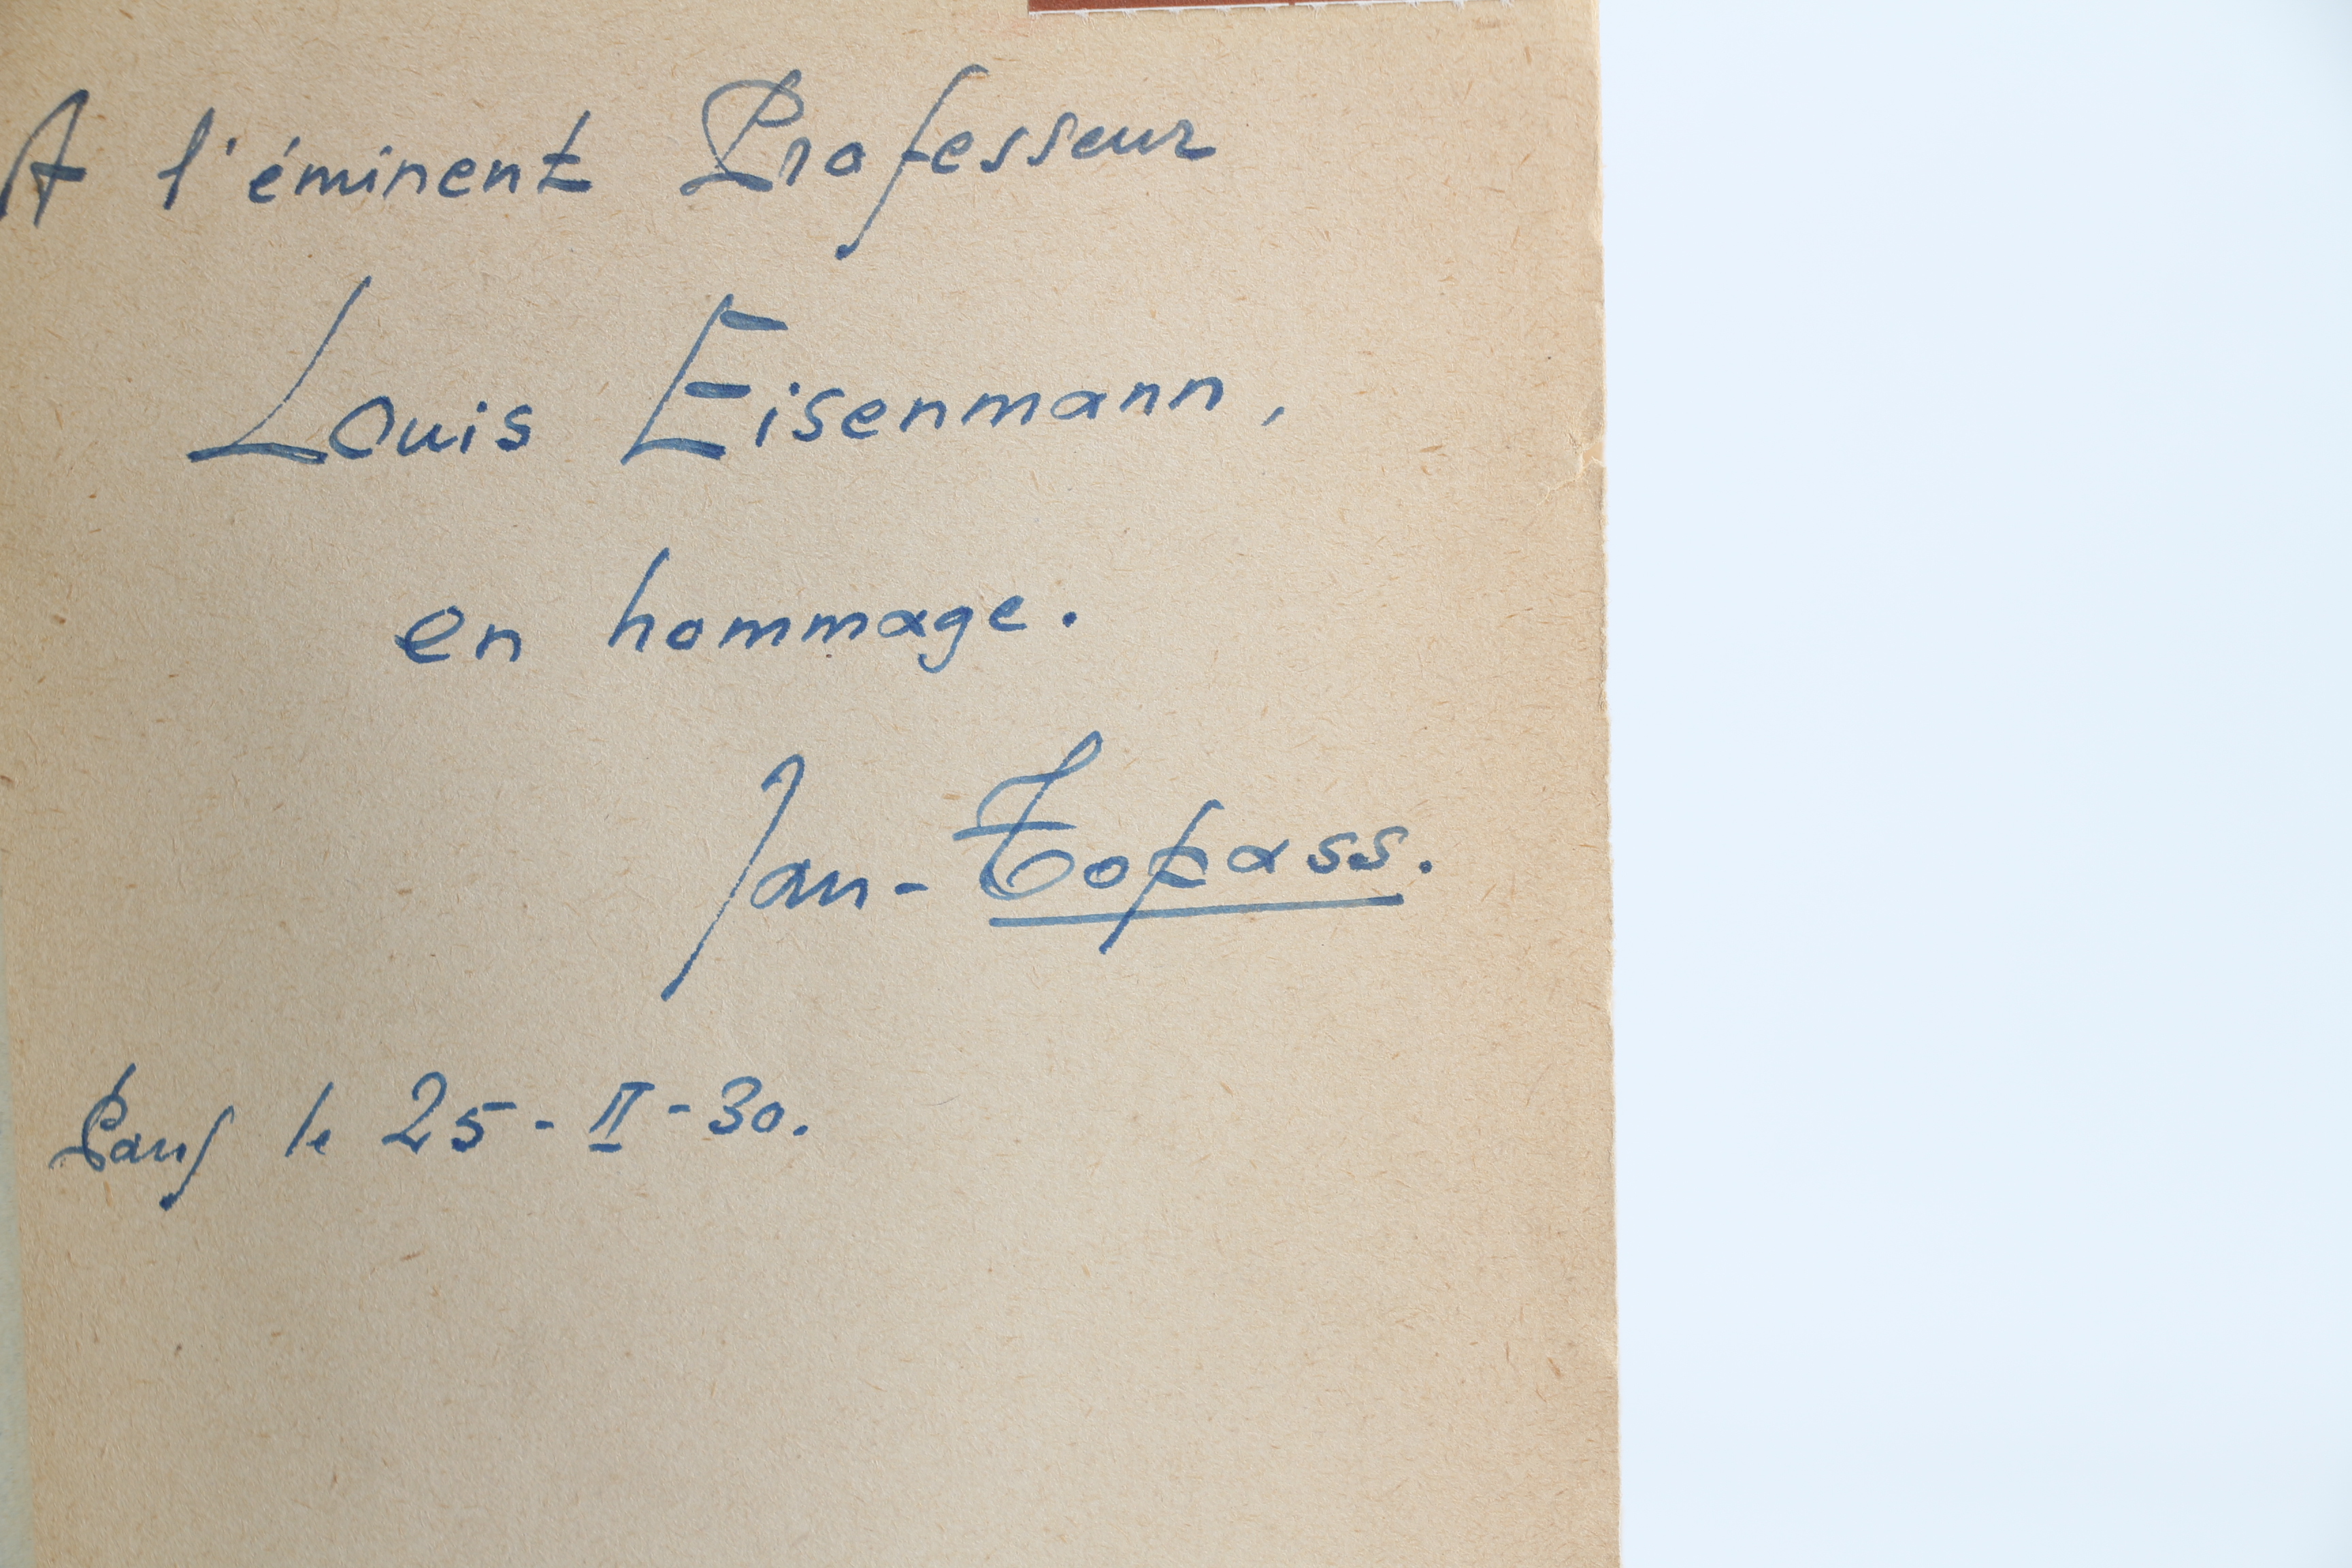 A l'éminent Professeur
Louis Eisenmann,
en hommage.
Jan-Topass.
Paris le 25-II-30.